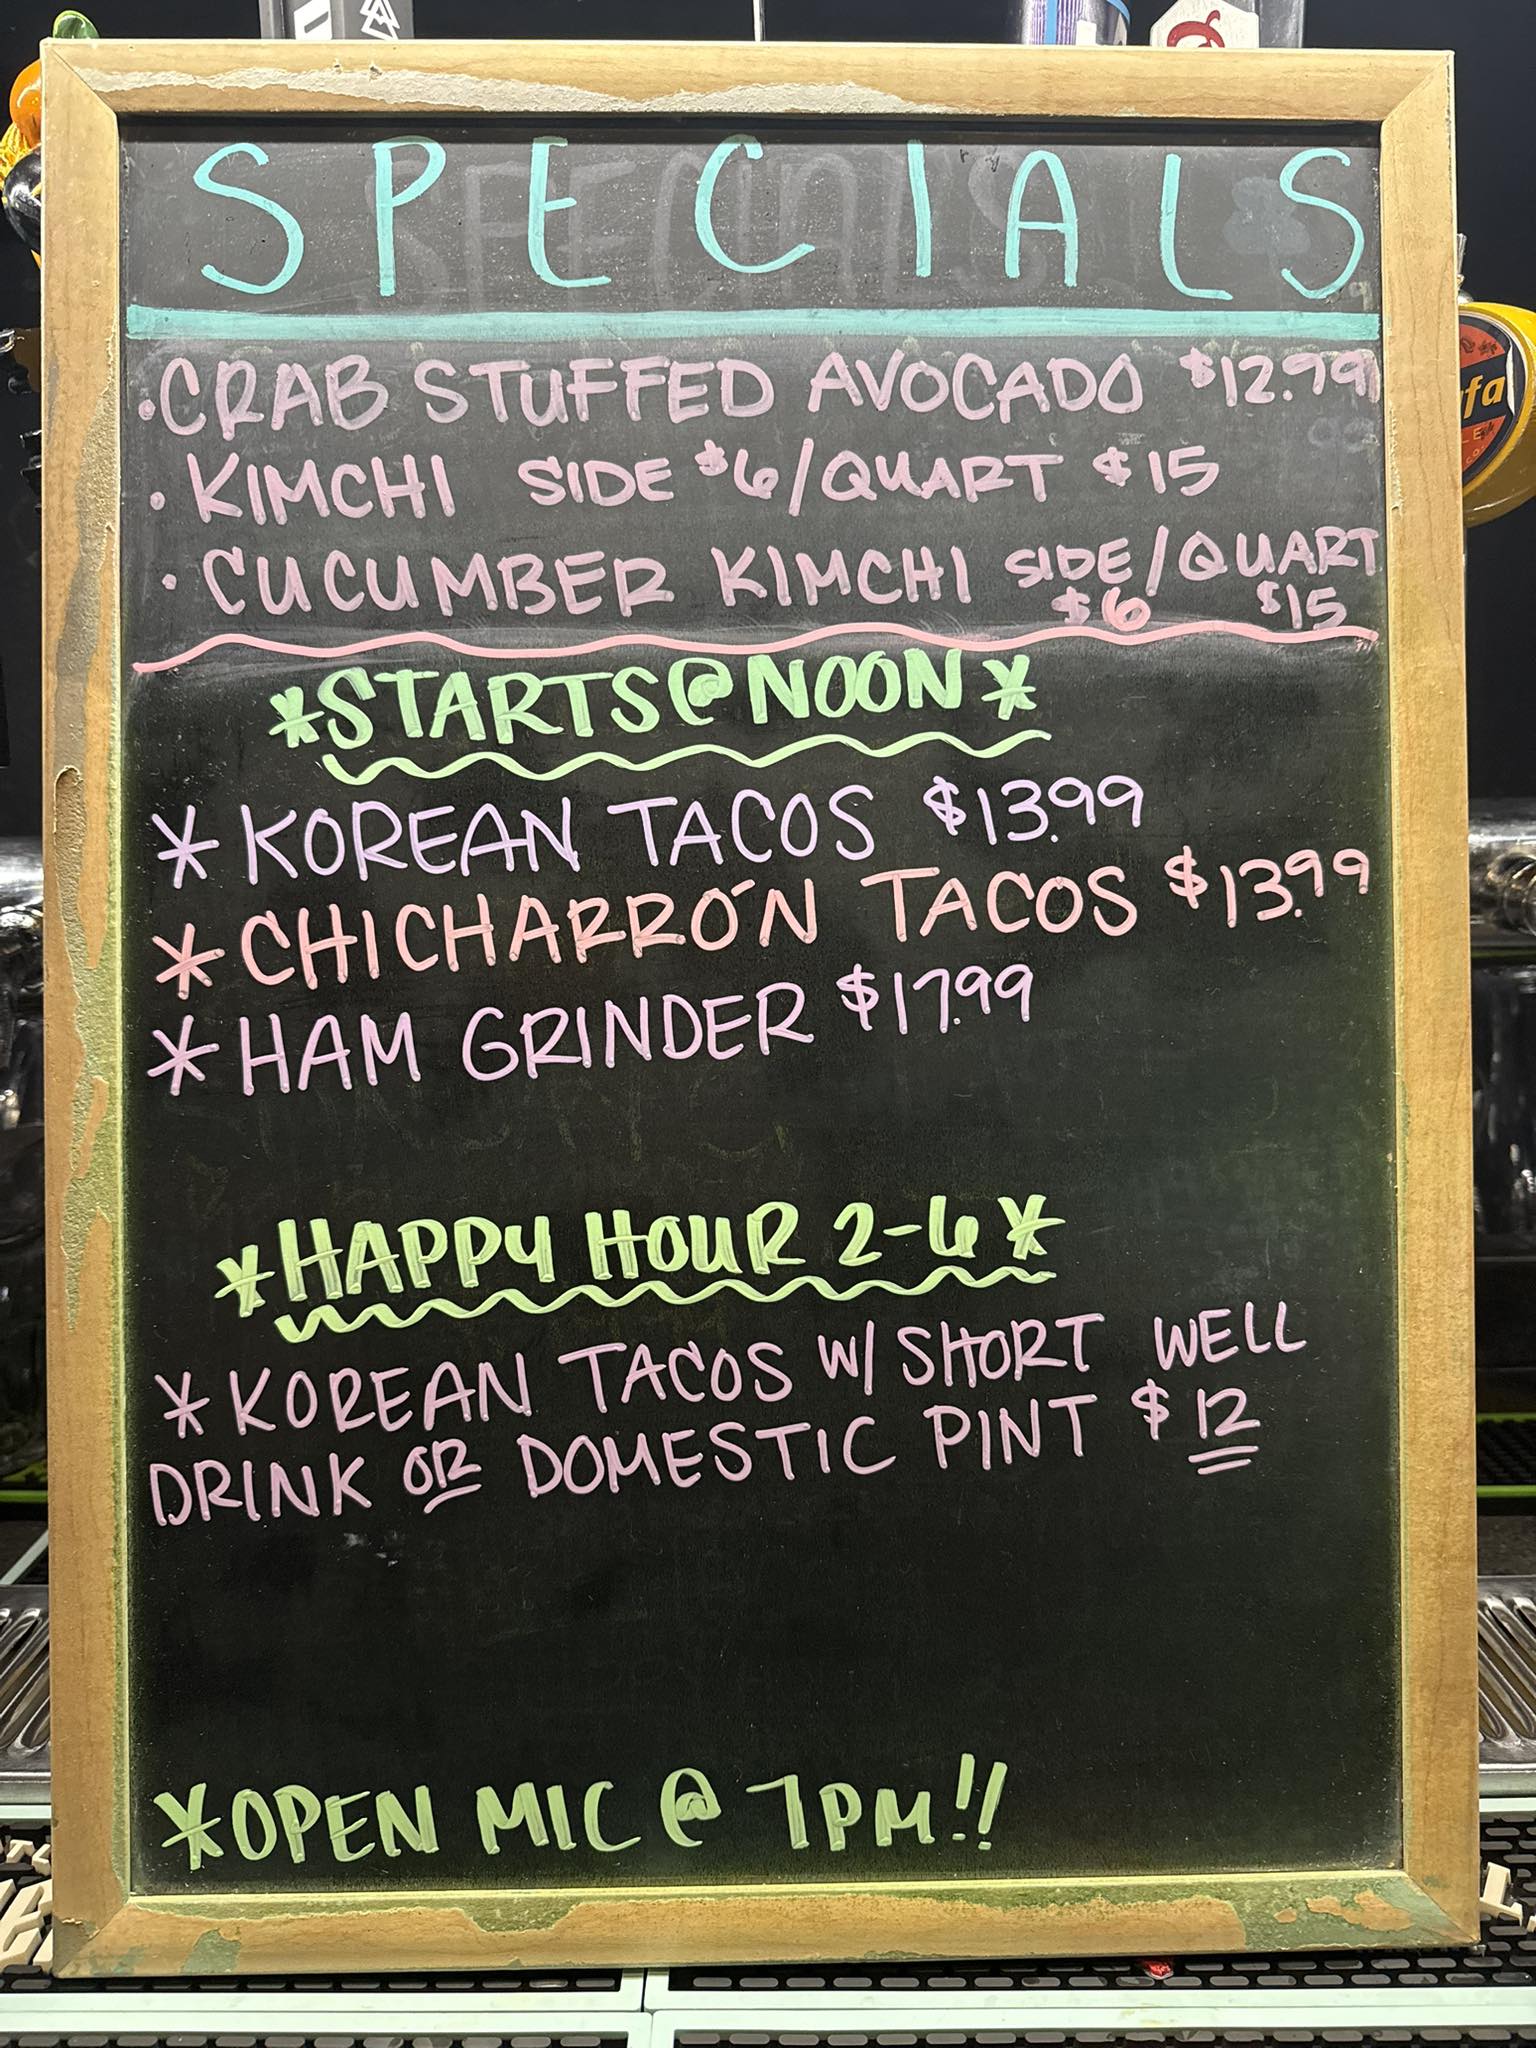 SPECIALS
• CRAB STUFFED AVOCADO $12.99
• KIMCHI SIDE $6/QUART $15
• CUCUMBER KIMCHI SIDE/QUART
$6 $15
*STARTS@NOON*
* KOREAN TACOS $13.99
* CHICHARRÓN TACOS $13.99
* HAM GRINDER $17.99
*HAPPY HOUR 2-6*
* KOREAN TACOS W/ SHORT WELL
DRINK OR DOMESTIC PINT $12
*OPEN MIC @ 7PM!!